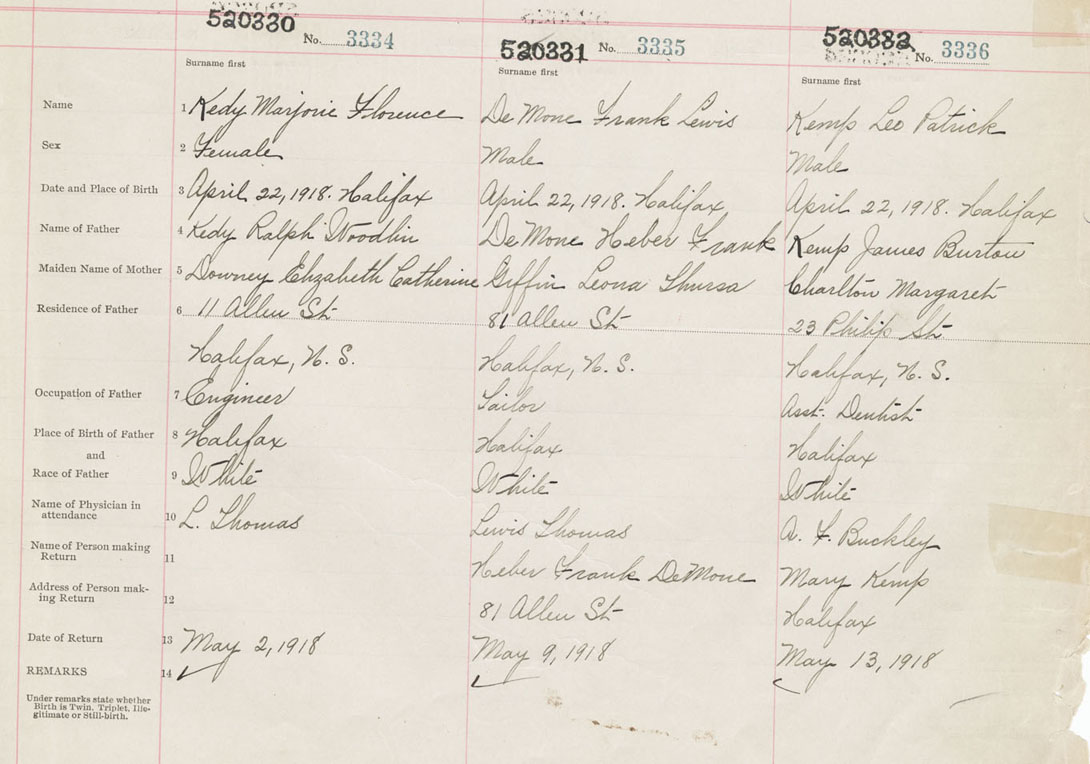 520330
No. 3334
520331
No. 3335
520332
No. 3336
Surname first
Surname first
Surname first
Name 1 Kedy Marjorie Florence De Mone Frank Lewis Kemp Leo Patrick
Sex 2 Female Male Male
Date and Place of Birth 3 April 22, 1918. Halifax April 22, 1918. Halifax April 22, 1918. Halifax
Name of Father 4 Kedy Ralph Woodlin DeMone Heber Frank Kemp James Burton
Maiden Name of Mother 5 Downey Elizabeth Catherine Giffin Leona Thursa Charlton Margaret
Residence of Father 6 11 Allen St 81 Allen St 23 Philip St.
Halifax, N. S. Halifax, N. S. Halifax, N. S.
Occupation of Father 7 Engineer Asst. Dentist
Place of Birth of Father 8 Halifax Halifax Halifax
and
Race of Father 9 White White White
Name of Physician in
attendance 10 L. Thomas Lewis Thomas A. F. Buckley
Name of Person making
Return 11 Heber Frank DeMone Mary Kemp
Address of Person mak-
ing Return 12 81 Allen St Halifax
Date of Return 13 May 2, 1918 May 9, 1918 May 13, 1918
REMARKS 14
Under remarks state whether
Birth is Twin, Triplet, Ille-
gitimate or Still-birth.